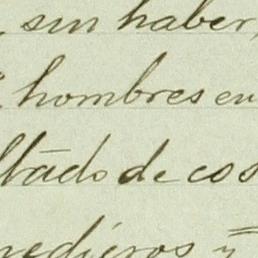 , sin haber,
hombres en
ltado de cos
medieros y